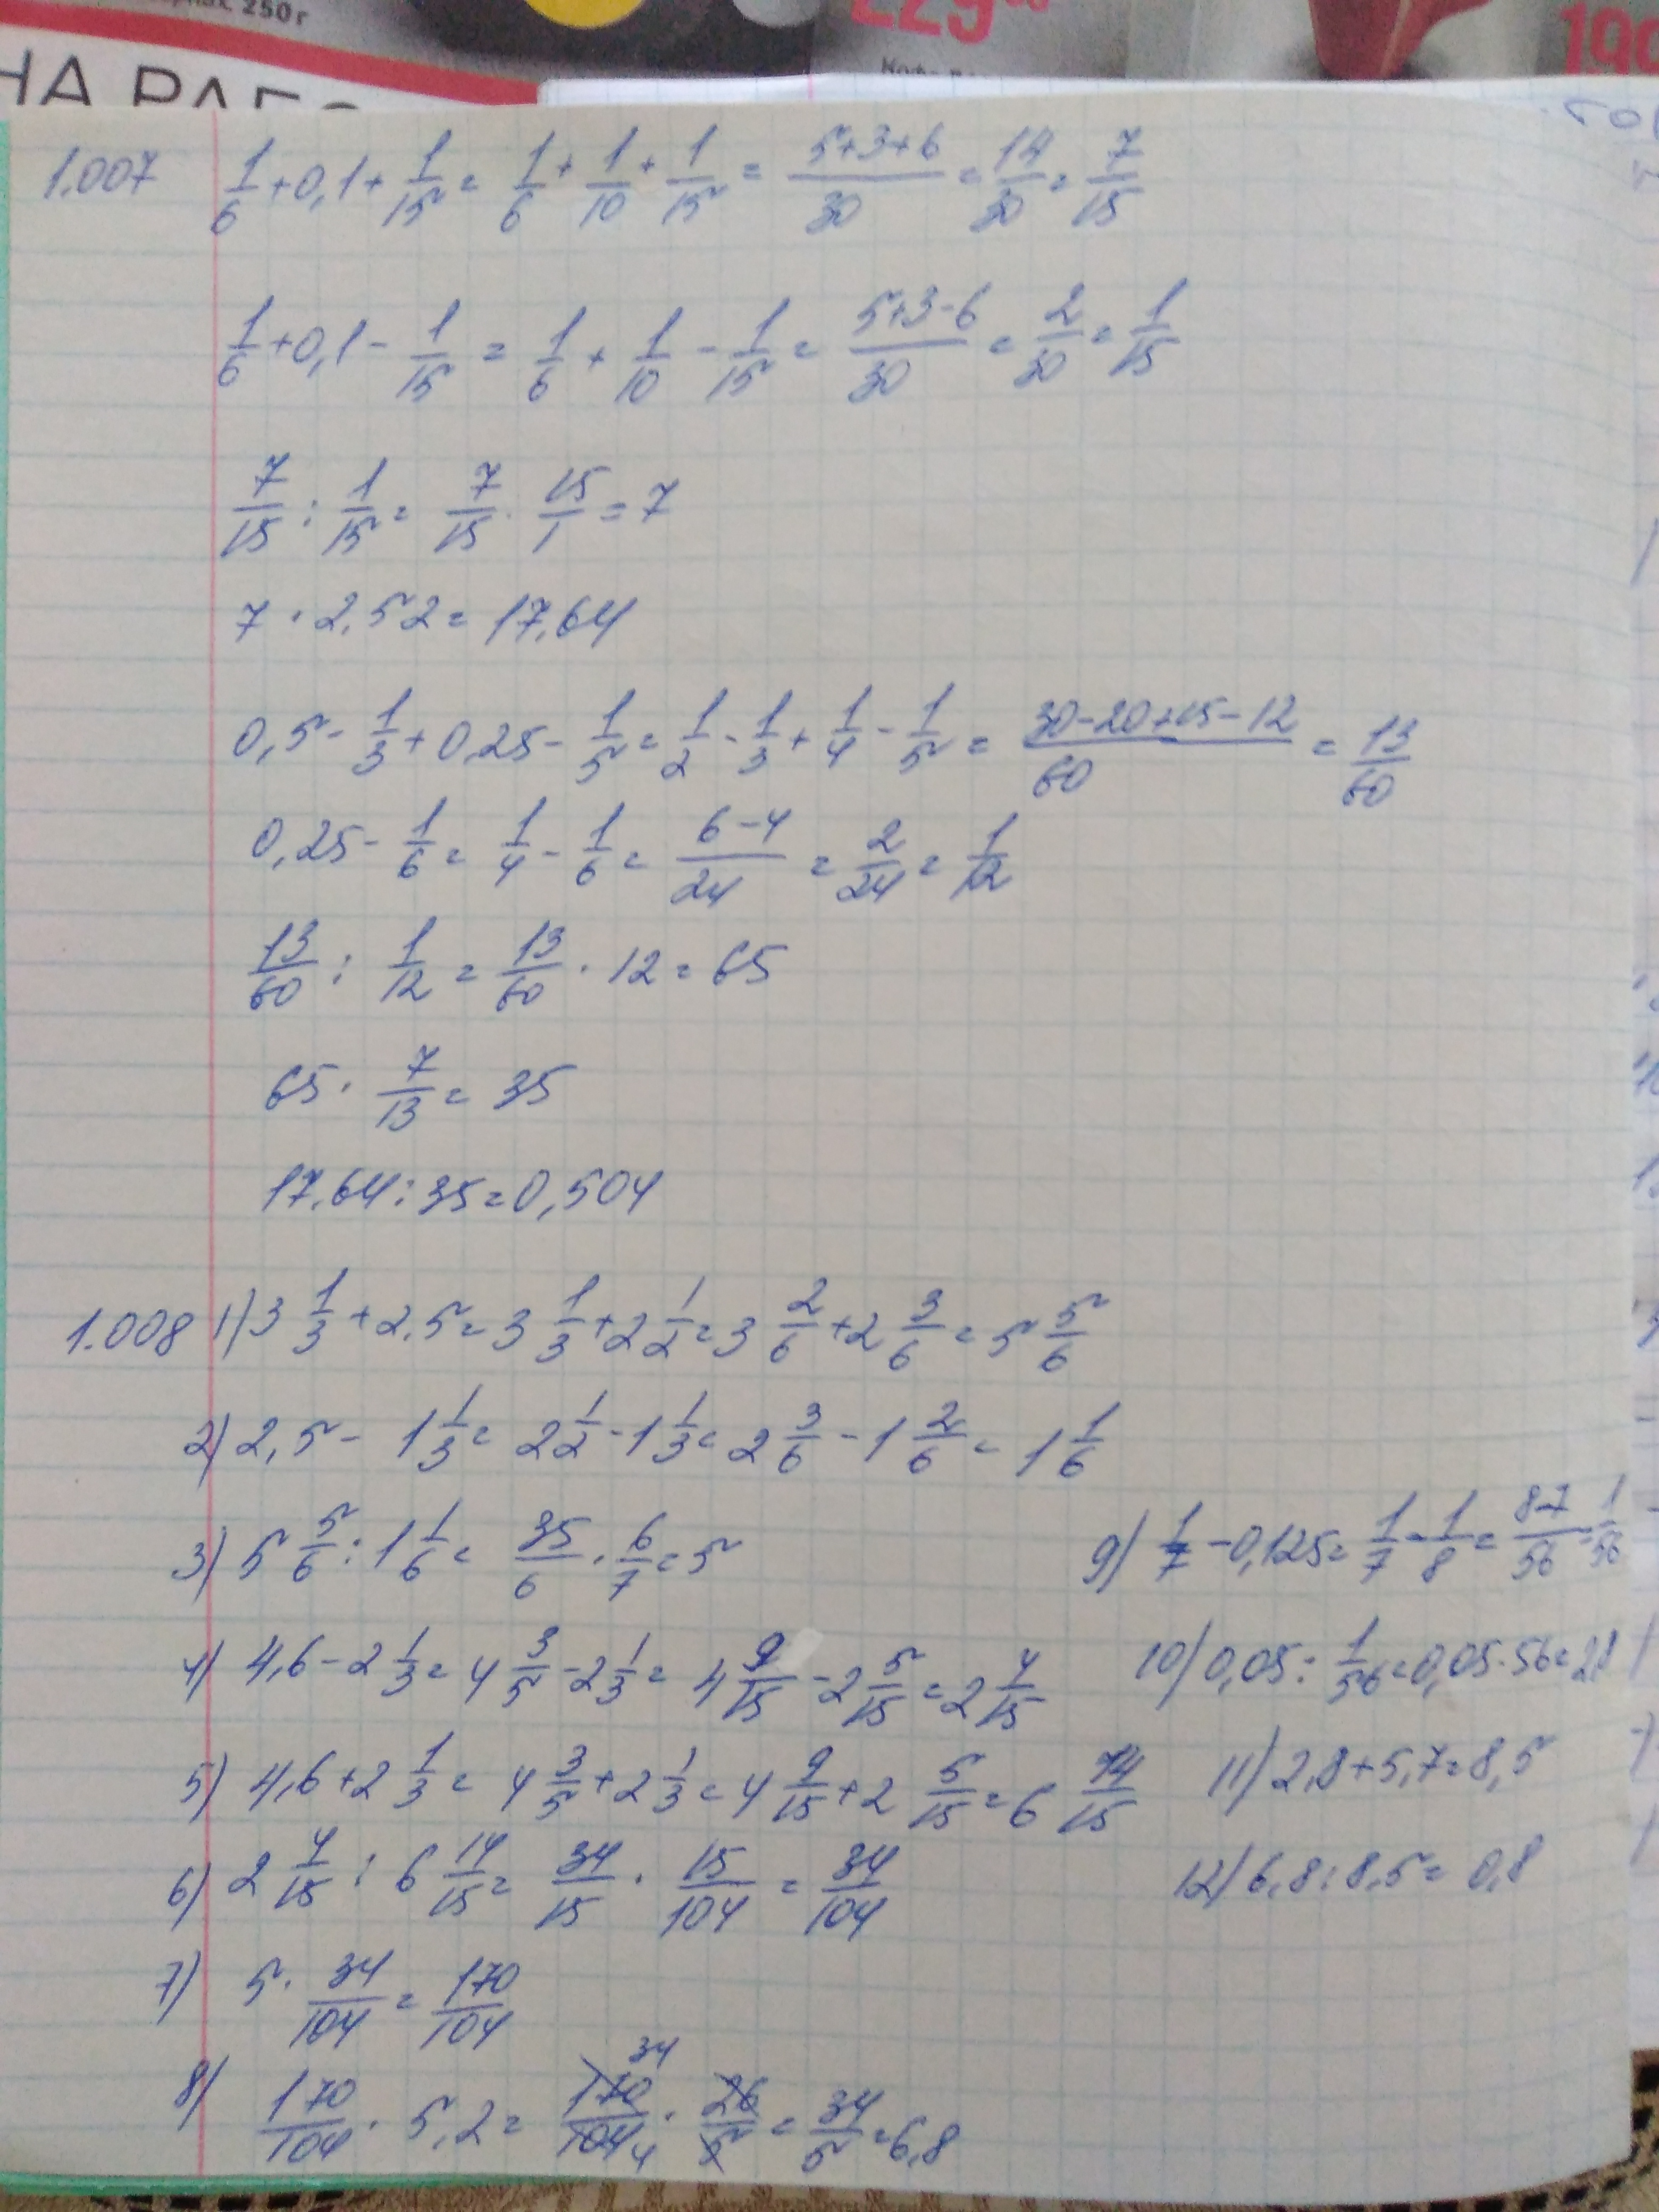 250г
229
199
НА РАБО
1.007 1/6 + 0,1 + 1/15 = 1/6 + 1/10 + 1/15 = (5+3+6)/30 = 14/30 = 7/15
1/6 + 0,1 - 1/15 = 1/6 + 1/10 - 1/15 = (5+3-6)/30 = 2/30 = 1/15
7/15 : 1/15 = 7/15 · 15/1 = 7
7 · 2,52 = 17,64
0,5 - 1/3 + 0,25 - 1/5 = 1/2 - 1/3 + 1/4 - 1/5 = (30-20+15-12)/60 = 13/60
0,25 - 1/6 = 1/4 - 1/6 = (6-4)/24 = 2/24 = 1/12
13/60 : 1/12 = 13/60 · 12 = 65
65 · 7/13 = 35
17,64 : 35 = 0,504
1.008 1) 3 1/3 + 2,5 = 3 1/3 + 2 1/2 = 3 2/6 + 2 3/6 = 5 5/6
2) 2,5 - 1 1/3 = 2 1/2 - 1 1/3 = 2 3/6 - 1 2/6 = 1 1/6
3) 5 5/6 : 1 1/6 = 35/6 · 6/7 = 5
4) 4,6 - 2 1/3 = 4 3/5 - 2 1/3 = 4 9/15 - 2 5/15 = 2 4/15
5) 4,6 + 2 1/3 = 4 3/5 + 2 1/3 = 4 9/15 + 2 5/15 = 6 14/15
6) 2 4/15 : 6 14/15 = 34/15 · 15/104 = 34/104
7) 5 · 34/104 = 170/104
8) 170/104 · 5,2 = 170/104 · 26/5 = 34/5 = 6,8
34
4
9) 1/7 - 0,125 = 1/7 - 1/8 = (8-7)/56 = 1/56
10) 0,05 : 1/56 = 0,05 · 56 = 2,8
11) 2,8 + 5,7 = 8,5
12) 6,8 : 8,5 = 0,8